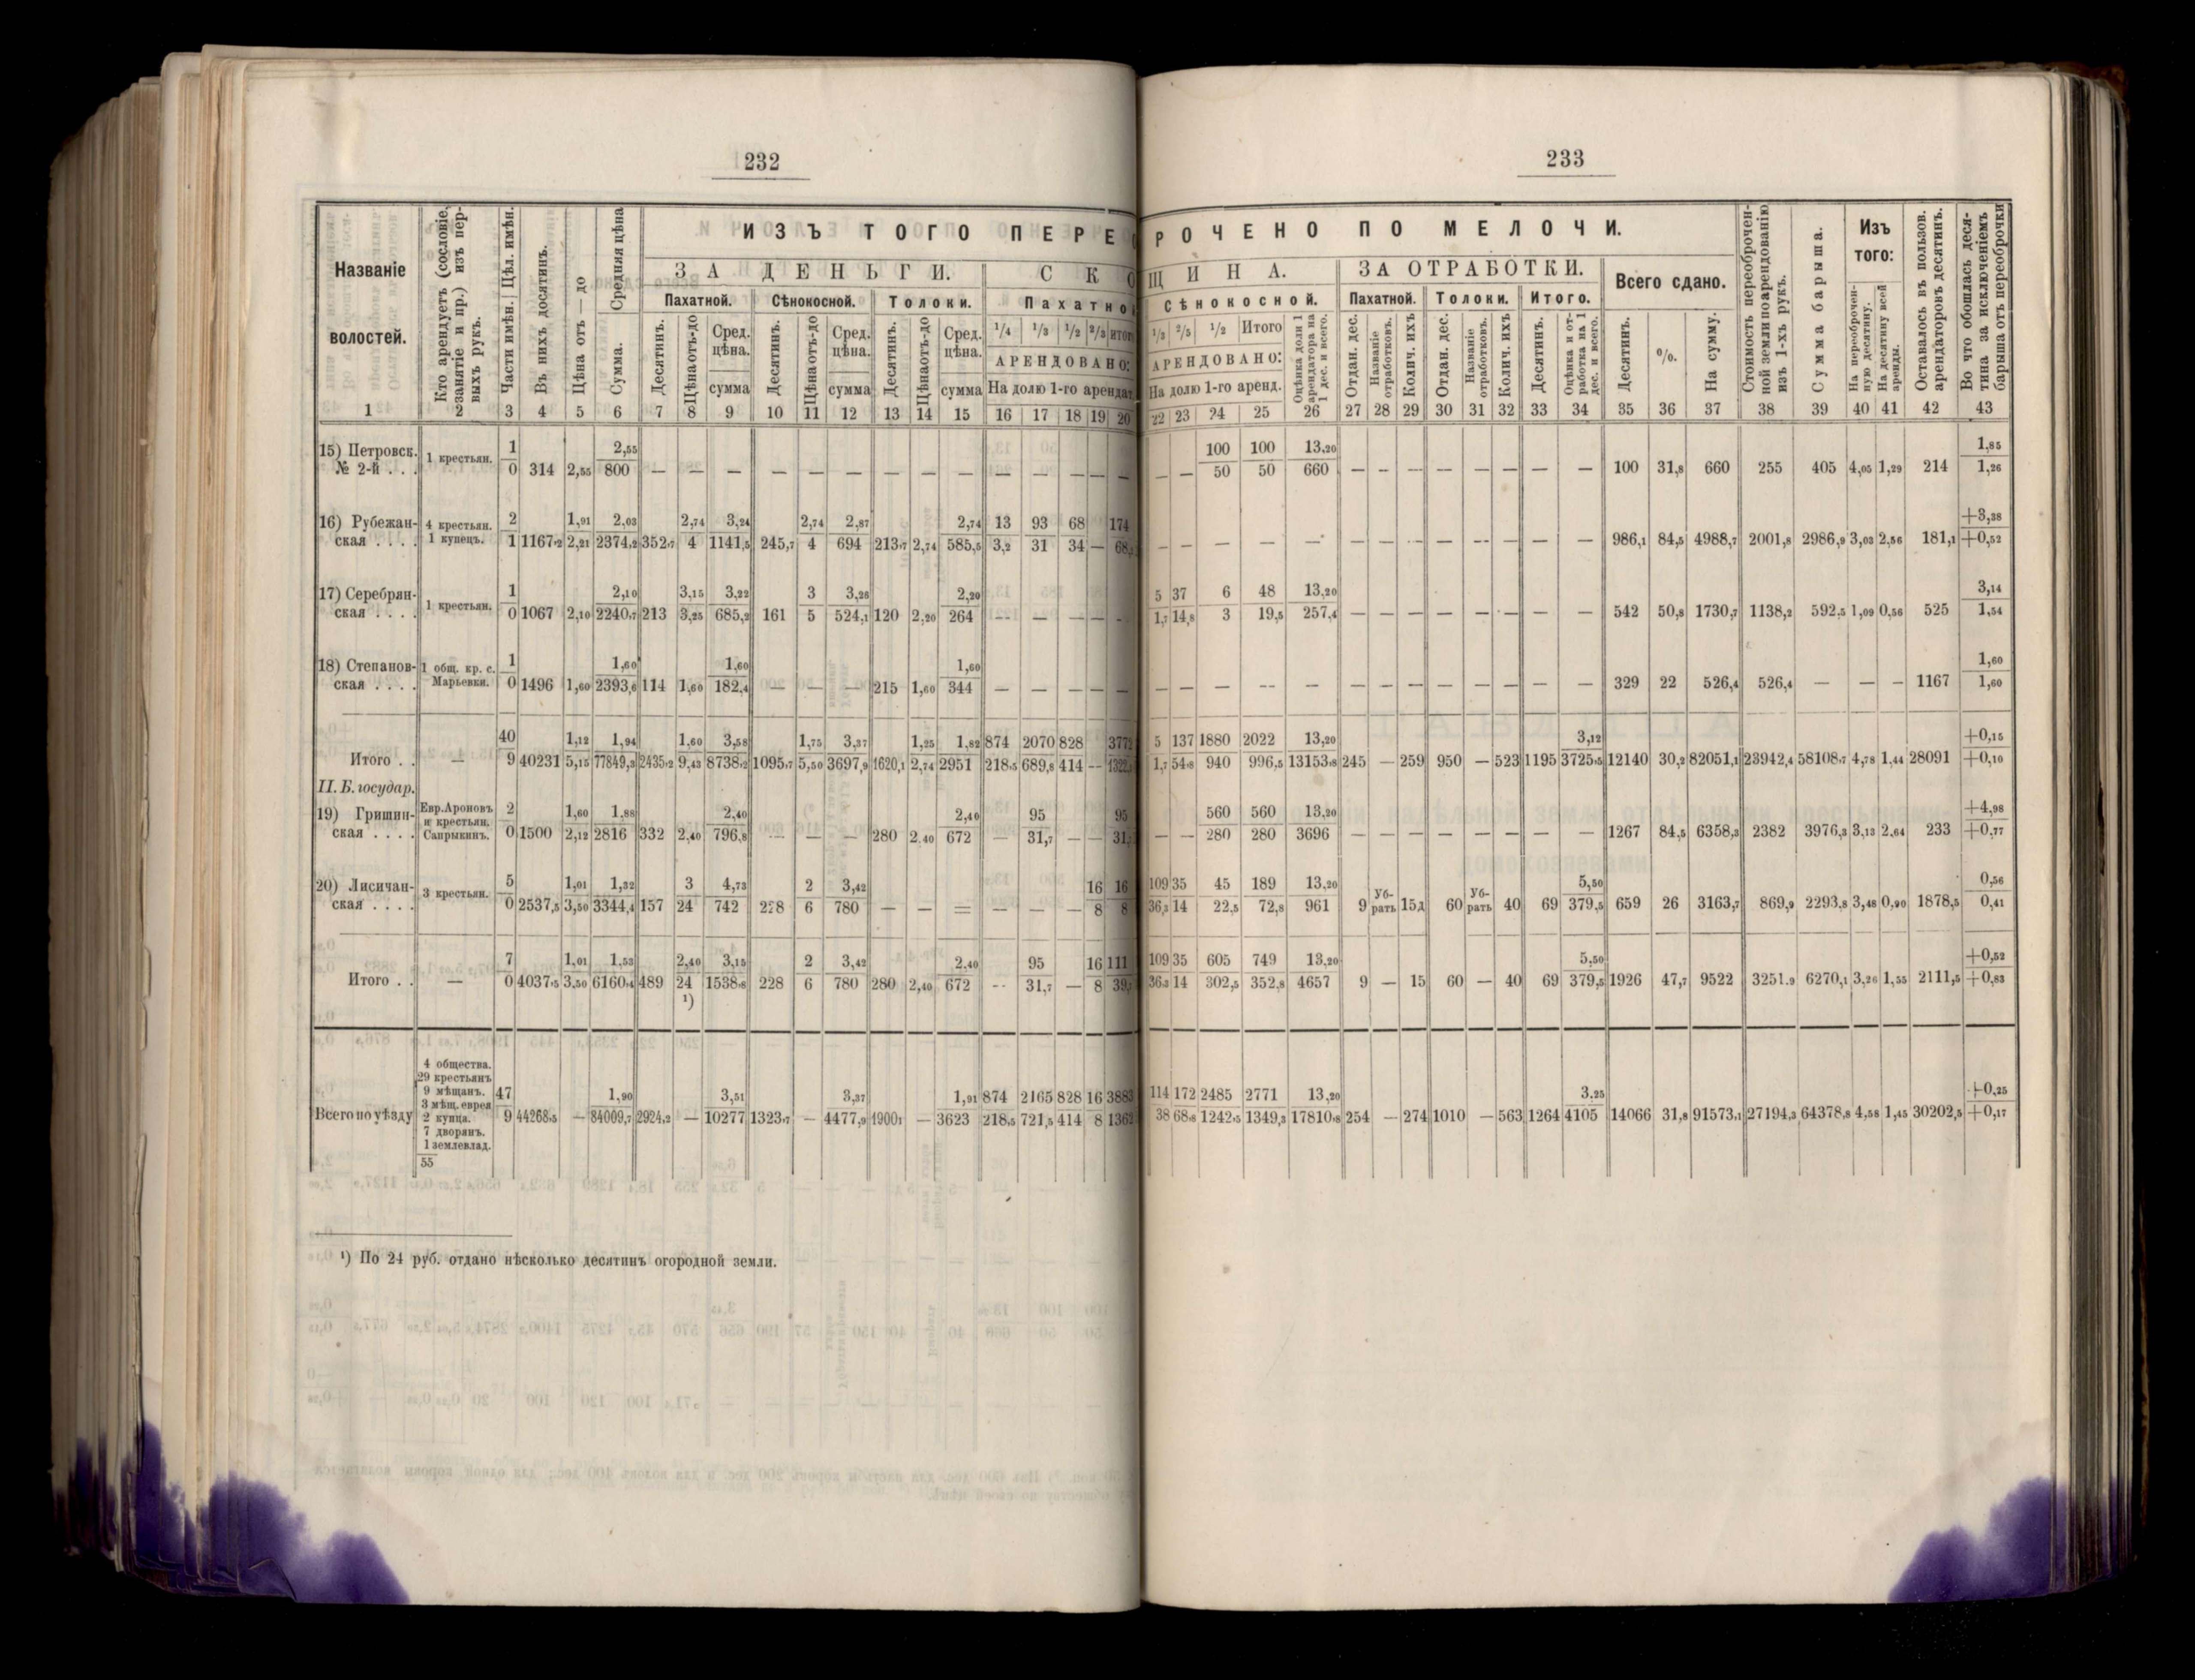 232
Названіе
волостей.
Кто арендуетъ (сословіе,
занятіе и пр.) изъ пер-
выхъ рукъ.
Части имѣн. Цѣл. имѣн.
Въ нихъ десятинъ.
Цѣна отъ — до
Сумма. Средняя цѣна
ИЗЪ ТОГО ПЕРЕ
ЗА ДЕНЬГИ. СКО
Пахатной. Сѣнокосной. Толоки. Пахатно
Десятинъ. Цѣна отъ-до Сред. цѣна. сумма Десятинъ. Цѣна отъ-до Сред. цѣна. сумма Десятинъ. Цѣна отъ-до Сред. цѣна. сумма
1/4 1/3 1/2 2/3 итого
АРЕНДОВАНО:
На долю 1-го арендат.
1 2 3 4 5 6 7 8 9 10 11 12 13 14 15 16 17 18 19 20
15) Петровск. 1 2,55
№ 2-й . . . 1 крестьян. 0 314 2,55 800 — — — — — — — — — — — — — —
16) Рубежан- 4 крестьян. 2 1,91 2,03 2,74 3,24 2,74 2,87 2,74 13 93 68 174
ская . . . . 1 купецъ. 1 1167,2 2,21 2374,2 352,7 4 1141,5 245,7 4 694 213,7 2,74 585,5 3,2 31 34 — 68
17) Серебрян- 1 2,10 3,15 3,22 3 3,26 2,20
ская . . . . 1 крестьян. 0 1067 2,10 2240,7 213 3,25 685,2 161 5 524,1 120 2,20 264 — — — — -
18) Степанов- 1 общ. кр. с. 1 1,60 1,60 1,60
ская . . . . Марьевки. 0 1496 1,60 2393,6 114 1,60 182,4 — — — 215 1,60 344 — — — — —
40 1,12 1,94 1,60 3,58 1,75 3,37 1,25 1,82 874 2070 828 3772
Итого . . — 9 40231 5,15 77849,3 2435,2 9,43 8738,2 1095,7 5,50 3697,9 1620,1 2,74 2951 218,5 689,8 414 — 1322
II. Б. государ.
19) Гришин- Евр.Ароновъ 2 1,60 1,88 2,40 2,40 95 95
и крестьян.
ская . . . . Сапрыкинъ. 0 1500 2,12 2816 332 2,40 796,8 — — — 280 2,40 672 — 31,7 — — 31
20) Лисичан- 5 1,01 1,32 3 4,73 2 3,42 16 16
ская . . . . 3 крестьян. 0 2537,5 3,50 3344,4 157 24 742 228 6 780 — — = — — — 8 8
7 1,01 1,53 2,40 3,15 2 3,42 2,40 95 16 111
Итого . . — 0 4037,5 3,50 6160,4 489 24 1538,8 228 6 780 280 2,40 672 -- 31,7 — 8 39
¹)
4 общества.
29 крестьянъ
9 мѣщанъ. 47 1,90 3,51 3,37 1,91 874 2165 828 16 3883
3 мѣщ. еврея
Всего по уѣзду 2 купца. 9 44268,5 — 84009,7 2924,2 — 10277 1323,7 — 4477,9 1900,1 — 3623 218,5 721,5 414 8 1362
7 дворянъ.
1 землевлад.
55
¹) По 24 руб. отдано нѣсколько десятинъ огородной земли.
233
РОЧЕНО ПО МЕЛОЧИ.
ЩИНА. ЗА ОТРАБОТКИ. Всего сдано.
Сѣнокосной. Пахатной. Толоки. Итого.
1/3 2/5 1/2 Итого
АРЕНДОВАНО:
На долю 1-го аренд.
Оцѣнка доли 1
арендатора на
1 дес. и всего.
Отдан. дес. Названіе отработковъ. Колич. ихъ
Отдан. дес. Названіе отработковъ. Колич. ихъ
Десятинъ. Оцѣнка и от-
работка на 1
дес. и всего.
Десятинъ. %. На сумму.
Стоимость переоброчен-
ной земли по арендованію
изъ 1-хъ рукъ.
Сумма барыша.
Изъ
того:
На переоброчен-
ную десятину.
На десятину всей
аренды.
Оставалось въ пользов.
арендаторовъ десятинъ.
Во что обошлась деся-
тина за исключеніемъ
барыша отъ переоброчки
22 23 24 25 26 27 28 29 30 31 32 33 34 35 36 37 38 39 40 41 42 43
100 100 13,20 1,85
— — 50 50 660 — - — — — — — — 100 31,8 660 255 405 4,05 1,29 214 1,26
+3,38
— — — — — — — — — — — — — 986,1 84,5 4988,7 2001,8 2986,9 3,03 2,56 181,1 +0,52
5 37 6 48 13,20 3,14
1,7 14,8 3 19,5 257,4 — — — — — — — — 542 50,8 1730,7 1138,2 592,5 1,09 0,56 525 1,54
1,60
— — — -- — — — — — — — — — 329 22 526,4 526,4 — — — 1167 1,60
5 137 1880 2022 13,20 3,12 +0,15
1,7 54,8 940 996,5 13153,8 245 — 259 950 — 523 1195 3725,5 12140 30,2 82051,1 23942,4 58108,7 4,78 1,44 28091 +0,10
560 560 13,20 +4,98
— — 280 280 3696 — — — — — — — — 1267 84,5 6358,3 2382 3976,3 3,13 2,64 233 +0,77
109 35 45 189 13,20 5,50 0,56
36,3 14 22,5 72,8 961 9 Уб-рать 15д 60 Уб-рать 40 69 379,5 659 26 3163,7 869,9 2293,8 3,48 0,90 1878,5 0,41
109 35 605 749 13,20 5,50 +0,52
36,3 14 302,5 352,8 4657 9 — 15 60 — 40 69 379,5 1926 47,7 9522 3251,9 6270,1 3,26 1,55 2111,5 +0,83
114 172 2485 2771 13,20 3,25 +0,25
38 68,8 1242,5 1349,3 17810,8 254 — 274 1010 — 563 1264 4105 14066 31,8 91573,1 27194,3 64378,8 4,58 1,45 30202,5 +0,17